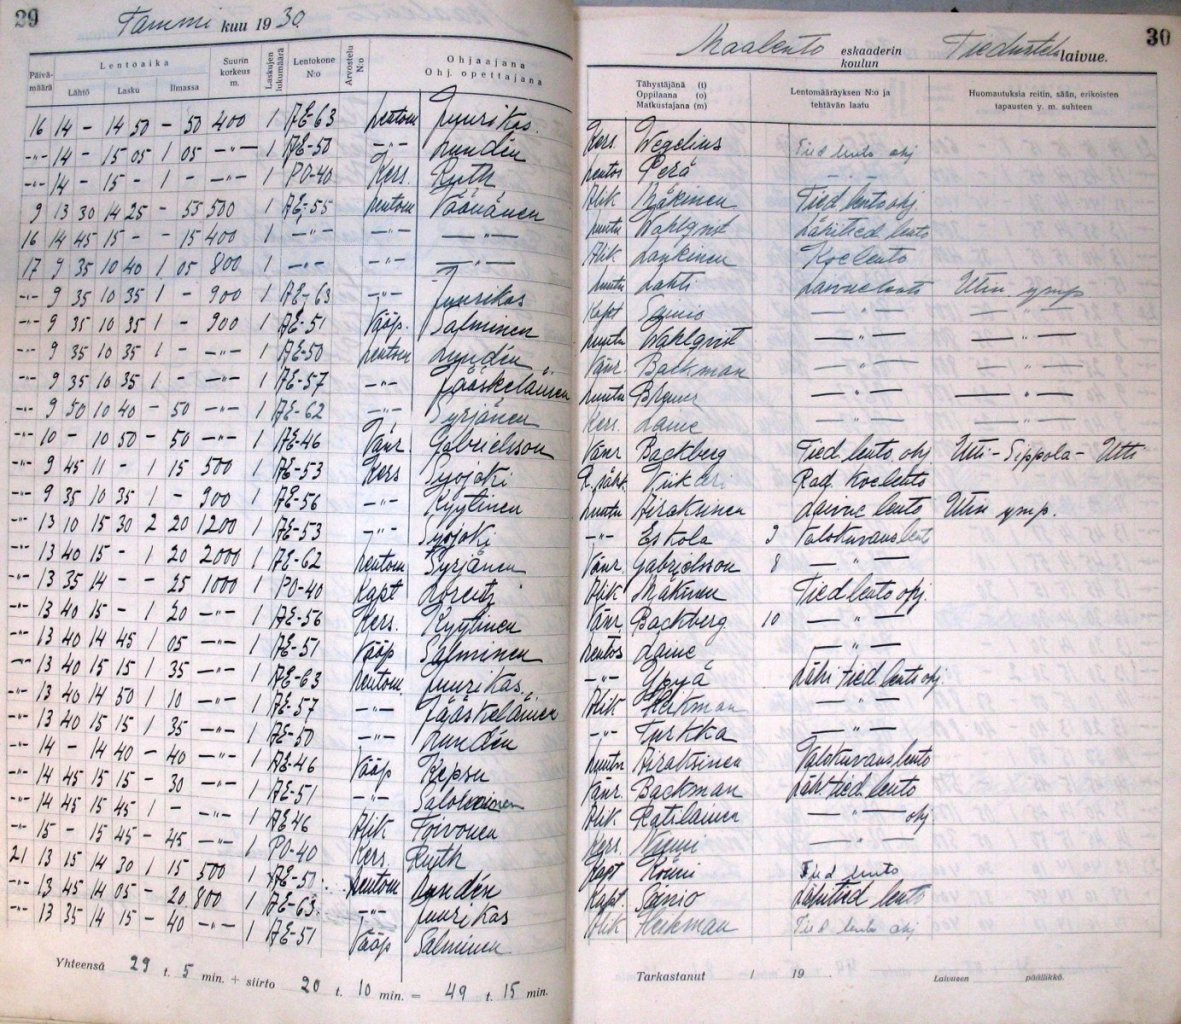 29
Tammi kuu 1930
Päivämäärä
Lentoaika
Lähtö Lasku Ilmassa
Suurin korkeus m.
Laskujen lukumäärä
Lentokone N:o
Arvostelu N:o
Ohjaajana
Ohj. opettajana
16 14 - 14 50 - 50 400 1 AE-63 Lentom Juurikas.
-"- 14 - 15 05 1 05 -"- 1 AE-50 -"- Lundén
-"- 14 - 15 - 1 - -"- 1 PO-40 Kers. Ruth
9 13 30 14 25 - 55 500 1 AE-55 Lentom Väänänen
16 14 45 15 - - 15 400 1 -"- -"- -"-
17 9 35 10 40 1 05 800 1 -"- -"- -"-
-"- 9 35 10 35 1 - 900 1 AE-63 -"- Juurikas
-"- 9 35 10 35 1 - 900 1 AE-51 Vääp. Salminen
-"- 9 35 10 35 1 - -"- 1 AE-50 Lentom Lundén
-"- 9 35 10 35 1 - -"- 1 AE-57 -"- Jääskeläinen
-"- 9 50 10 40 - 50 -"- 1 AE-62 -"- Syrjänen
-"- 10 - 10 50 - 50 -"- 1 AE-46 Vänr. Gabrielsson
-"- 9 45 11 - 1 15 500 1 AE-53 Kers Syojoki
-"- 9 35 10 35 1 - 900 1 AE-56 -"- Kyytinen
-"- 13 10 15 30 2 20 1200 1 AE-53 -"- Syojoki
-"- 13 40 15 - 1 20 2000 1 AE-62 Lentom Syrjänen
-"- 13 35 14 - - 25 1000 1 PO-40 Kapt Lorentz
-"- 13 40 15 - 1 20 -"- 1 AE-56 Kers. Kyytinen
-"- 13 40 14 45 1 05 -"- 1 AE-51 Vääp Salminen
-"- 13 40 15 15 1 35 -"- 1 AE-63 Lentom Juurikas.
-"- 13 40 14 50 1 10 -"- 1 AE-57 -"- Jääskeläinen
-"- 13 40 15 15 1 35 -"- 1 AE-50 -"- Lundén
-"- 14 - 14 40 - 40 -"- 1 AE-46 Vääp Kepsu
-"- 14 45 15 15 - 30 -"- 1 AE-51 -"-
-"- 14 45 15 45 1 - -"- 1 AE 46 Alik Toivonen
-"- 15 - 15 45 - 45 -"- 1 PO-40 Kers. Ruth
21 13 15 14 30 1 15 500 1 AE-50 Lentom Lundén
-"- 13 45 14 05 - 20 800 1 AE-63 -"- Juurikas
-"- 13 35 14 15 - 40 -"- 1 AE-51 Vääp Salminen
Yhteensä 29 t. 5 min. + siirto 20 t. 10 min. = 49 t. 15 min.
Maalento eskaaderin koulun Tiedustelulaivue.
30
Tähystäjänä (t)
Oppilaana (o)
Matkustajana (m)
Lentomääräyksen N:o ja tehtävän laatu
Huomautuksia reitin, sään, erikoisten tapausten y. m. suhteen
Kers. Wegelius Tied lento ohj
Lentos Perä -"-
Alik Mäkinen Tied lento ohj
Luutn Wahlqvist Lähitied lento
Alik Lankinen Koelento
Luutn Lahti Laivue lento Utin ymp
Kapt Sainio -"- -"-
Luutn Wahlqvist -"- -"-
Vänr. Backman -"- -"-
Luutn -"- -"-
Kers. Laine -"- -"-
Vänr Backberg Tied lento ohj Utti-Sippola-Utti
Rad. Koelento
Luutn Airaksinen Laivue lento Utin ymp.
-"- Eskola Valokuvauslento
Vänr Gabrielsson 8 -"-
Alik Mäkinen Tied lento ohj.
Vänr. Backberg 10 -"-
Lentos Laine -"-
-"- Lähi tied lento ohj
Alik Heikman -"-
-"- Turkka -"-
Luutn Airaksinen Valokuvauslento
Vänr Backman Lähi tied lento
Alik Ratilainen -"- ohj
Kers. Niemi -"-
Kapt Tied lento
Kapt. Sainio Lähitied lento
Alik Heikman Tied lento ohj
Tarkastanut / 19 . Laivueen päällikkö.